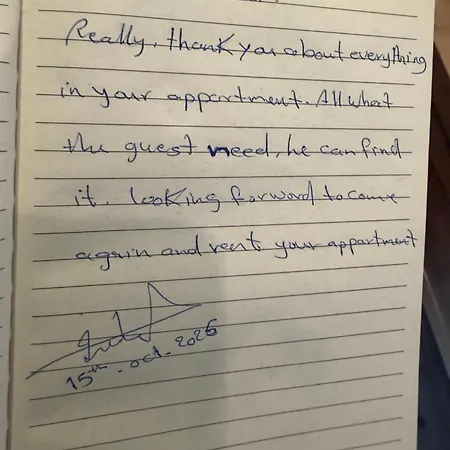 Really, thank you about everything
in your appartment. All what
the guest need, he can find
it. looking forward to come
again and rent your appartment
15th - oct - 2025